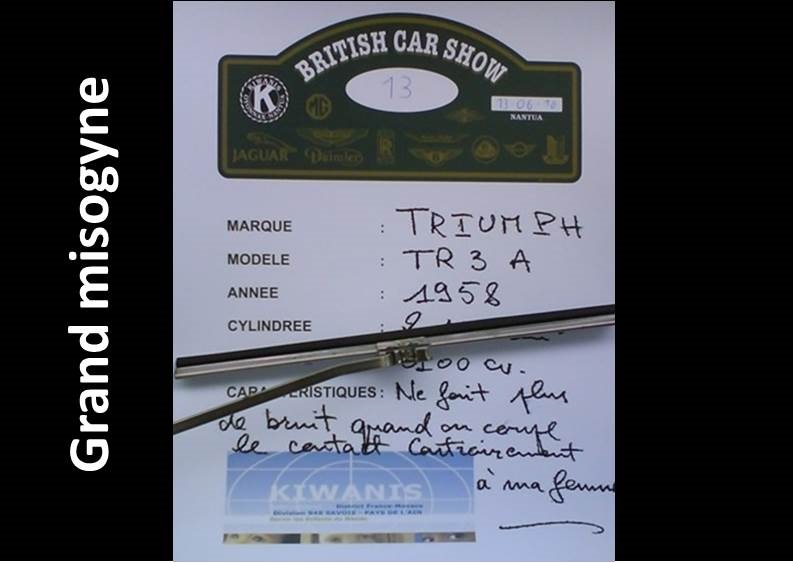 Grand misogyne
BRITISH CAR SHOW
13
KIWANIS
OYONNAX NANTUA
K
MG
13 06 10
NANTUA
JAGUAR
Daimler
MARQUE : TRIUMPH
MODELE : TR 3 A
ANNEE : 1958
CYLINDREE :
100 cv.
CARACTERISTIQUES : Ne fait plus
de bruit quand on coupe
le contact Contrairement
à ma femme
KIWANIS
District France-Monaco
Division 948 SAVOIE - PAYS DE L'AIN
Servir les Enfants du Monde